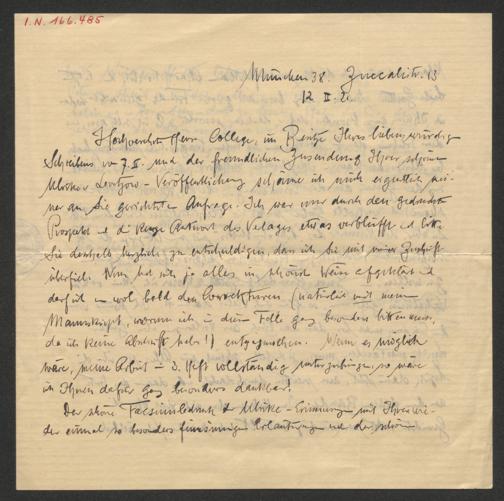 I.N. 166.485
München 38. Zuccalistr. 13
12 II.
Hochverehrter Herr College, im Besitze Ihres liebenswürdigen
Schreibens v. 7. II. und der freundlichen Zusendung Ihrer schönen
Ulrike v. Levetzow-Veröffentlichung schäme ich mich eigentlich mei-
ner an Sie gerichteten Anfrage. Ich war nur durch den gedruckten
Prospekt u d Antwort des Verlages etwas verblüfft u bitte
Sie deshalb herzlich zu entschuldigen, dass ich Sie mit meiner Zuschrift
überfiel. Nun hat sich ja alles in schönster Weise aufgeklärt u
darf ich wol bald den Correcturen (natürlich mit meinem
Manuskript, worum ich in diesem Falle ganz besonders bitten muss,
da ich keine Abschrift habe!) entgegensehen. Wenn es möglich
wäre, meine Arbeit im 3. Heft vollständig unterzubringen, so wäre
ich Ihnen dafür ganz besonders dankbar!
Der schöne Facsimiledruck der Ulrike-Erinnerungen mit Ihren wie-
der einmal so besonders feinsinnigen Erläuterungen und der schönen